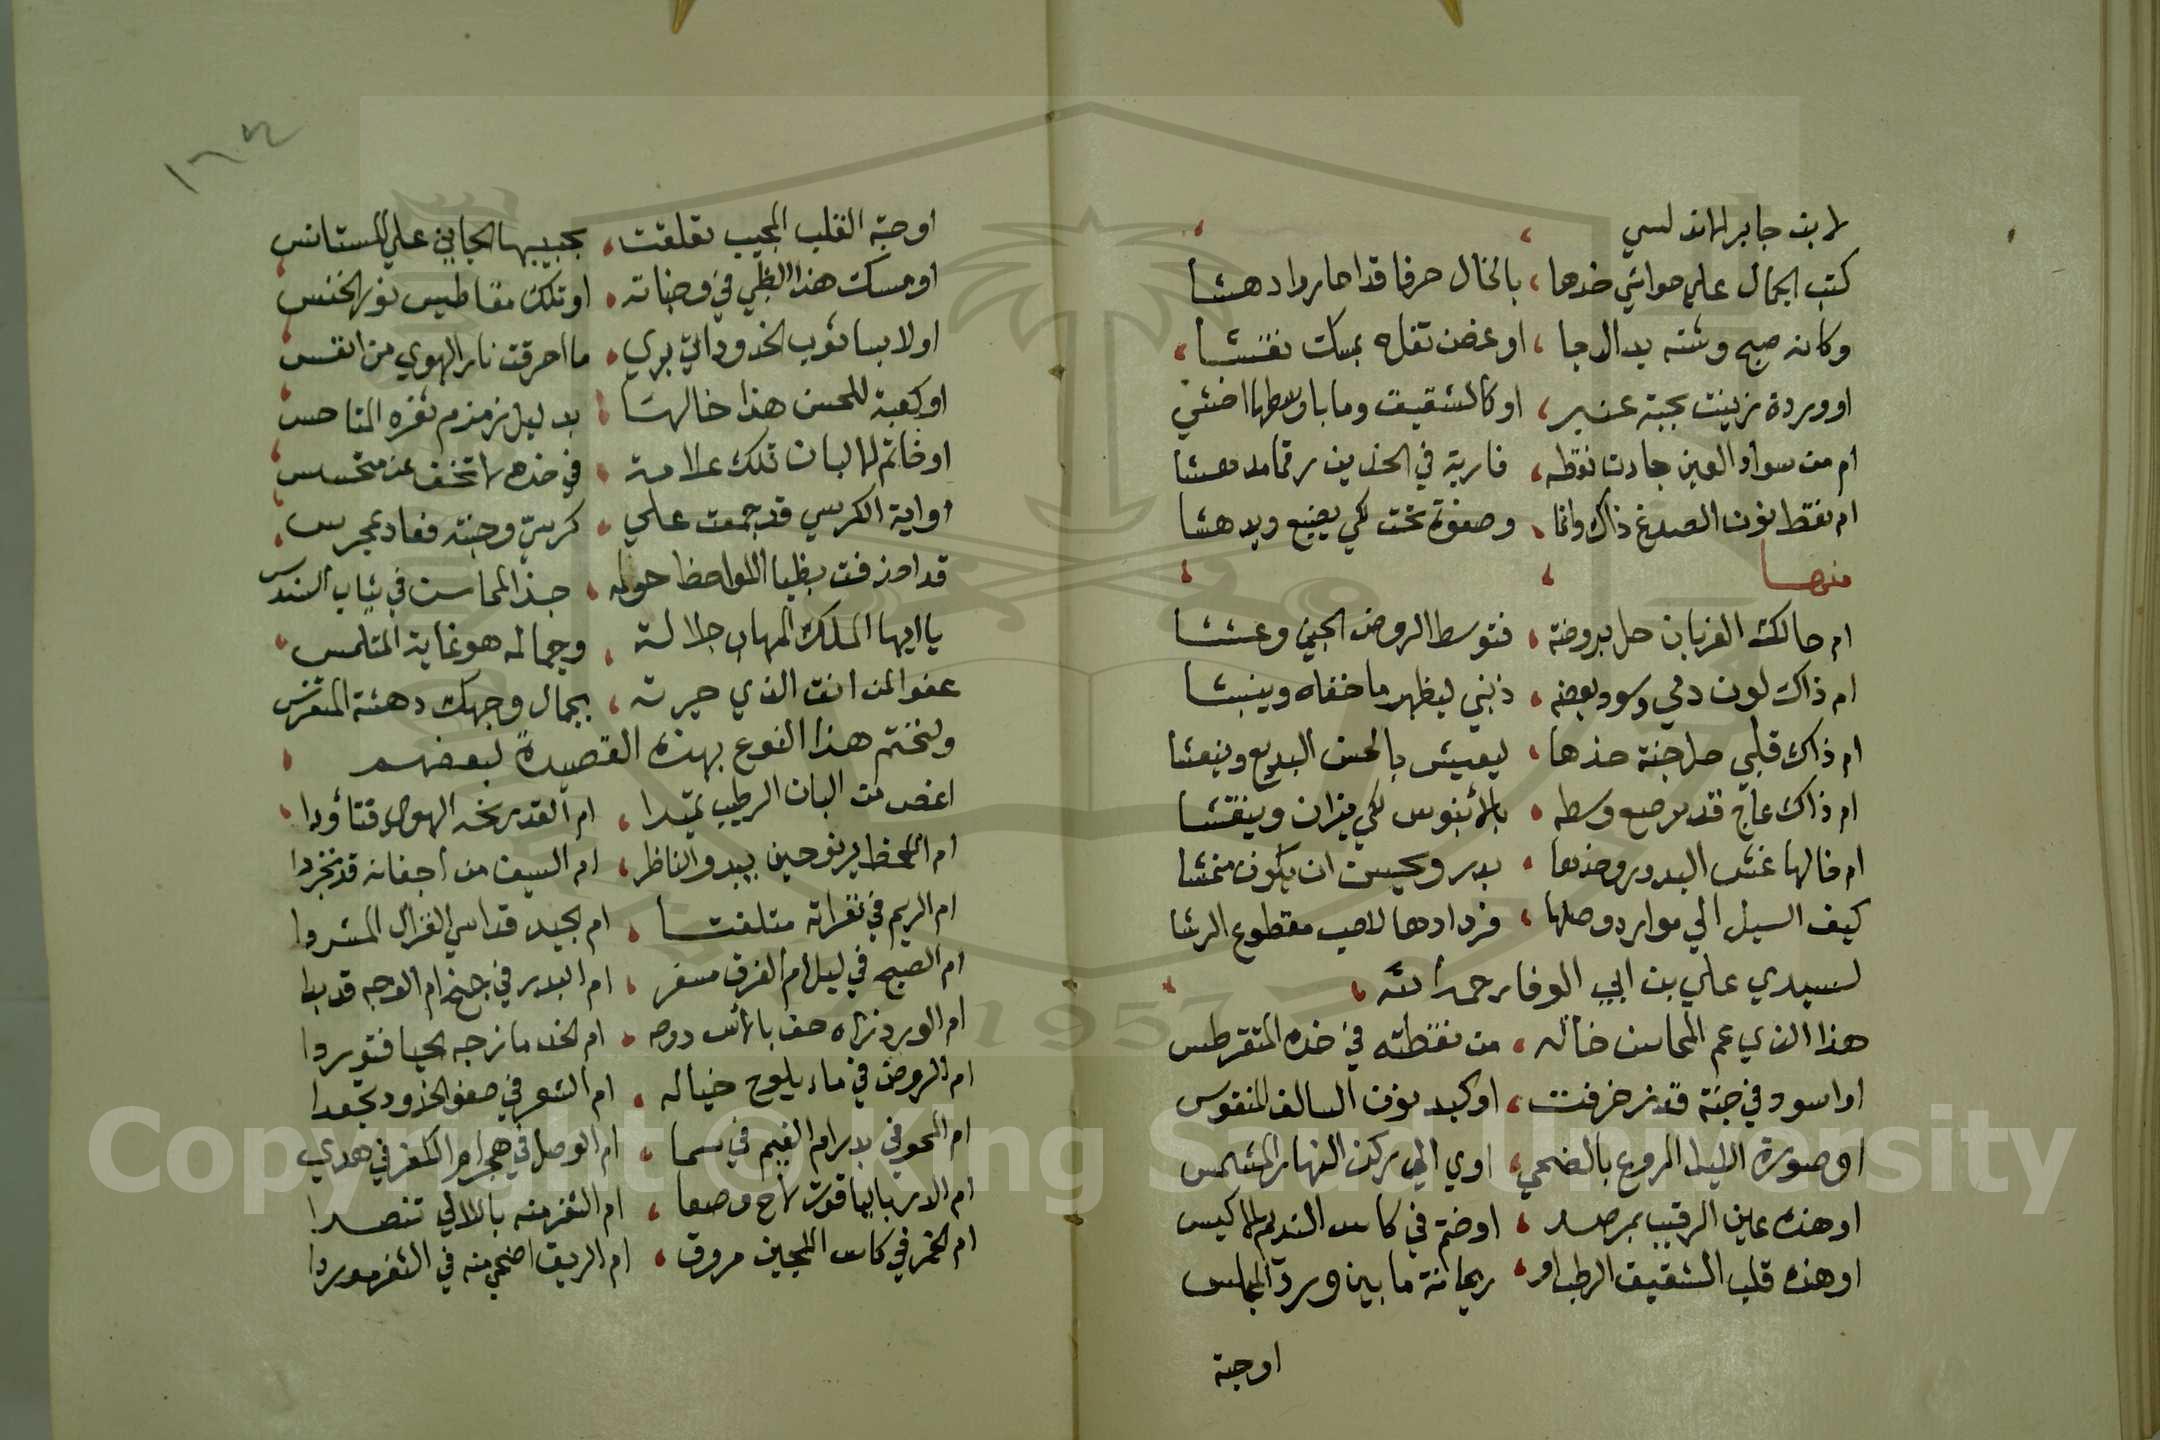 لابن جابر الاندلسي
كتب الجمال علي حواشي خدها بالخال حرفا قد احار وادهشا
وكانه صبح وشته يد الدجا او غصن تفله بمسك نقشا
او وردة زينت بحبة عنبر او كالشقيق وما باوسطها اختشي
ام من سواد العين جادت نقطه في الخدين رقما مدهشا
ام نقط نون الصدغ ذاك وانما وصفوة تحت لكي يضيع ويدهشا
منها
ام حالك الغربان حل بروضة فتوسط الروض الجني وعششا
ام ذاك لون دمي وسود بعضه ذنبي ليظهر ما خفاه وينبشا
ام ذاك قلبي حل جنة خدها ليعيش بالحسن البديع وينعشا
ام ذاك عاج قد ترصع وسطه بالابنوس لكي يزان وينقشا
ام خالها غش البدور وخدها بدر ويحسن ان يكون منمشا
كيف السبيل الي موارد وصلها فردادها لاحب مقطوع الرشا
لسيدي علي بن ابي الوفا رحمه الله
هذا الذي عم المحاسن خاله من نقطته في خده المتقرطس
او اسود في جنة قد زخرفت او كبد نون السالف المتقوس
او صورة الليل المروع بالضحي اوي الي ركن النهار المشمس
او هذه عين الرقيب بمرصد او ختم في كاس النديم الاكيس
او هذه قلب الشقيق الرطب او ريحانة ما بين ورد المجلس
او حبة
١٠٢
او حبة القلب المحب تعلقت بحبيبها الجاني علي المستانس
او مسك هذا الظبي في وجناته او تلك مغناطيس نور الخنس
او لابسا ثوب الخدود الذي بري ما احرقت نار الهوي من انفس
او كعبة للحسن هذا خالها بدليل زمزم ثغره المتاحس
او خاتم لالبان تلك علامة في خده لا تخف عن متحسس
او اية الكرسي قد جمعت علي كرسي وجنته فعاد بمجرس
قد احزفت بظبا اللواحظ حوله جند المحاسن في ثياب السندس
يا ايها الملك المهاب جلالة وجماله هو غاية المتلمس
عفوا لمن انت الذي حيرته بجمال وجهك دهشة المتفرس
ولنختم هذا النوع بهذه القصيدة لبعضهم
اغصن من البان الرطيب تميدا ام القد رنحه الهوي فتاودا
ام اللحظ يرنو حين يبدو لناظر ام السيف من اجفانه قد تجردا
ام الريم في نفراته متلفتا ام الجيد قد اسي الغزال المشردا
ام الصبح في ليل ام الفرق مسفر ام البدر في جنح ام الوجه قد بدا
ام الورد نراه حف بالاس دوحه ام الخد مازجه الحيا فتوردا
ام الروض في ماء يلوح خياله ام الشعر في صفو الخدود تجعدا
ام المحو في بدر ام الغيم في سما ام الوصل في هجر ام الكفر في هدي
ام الدر بالياقوت لاح مرصعا ام الثغر منه باللالي تنضدا
ام الخمر في كاس اللجين مروق ام الريق اضحي منه في الثغر موردا
1957
Copyright © King Saud University